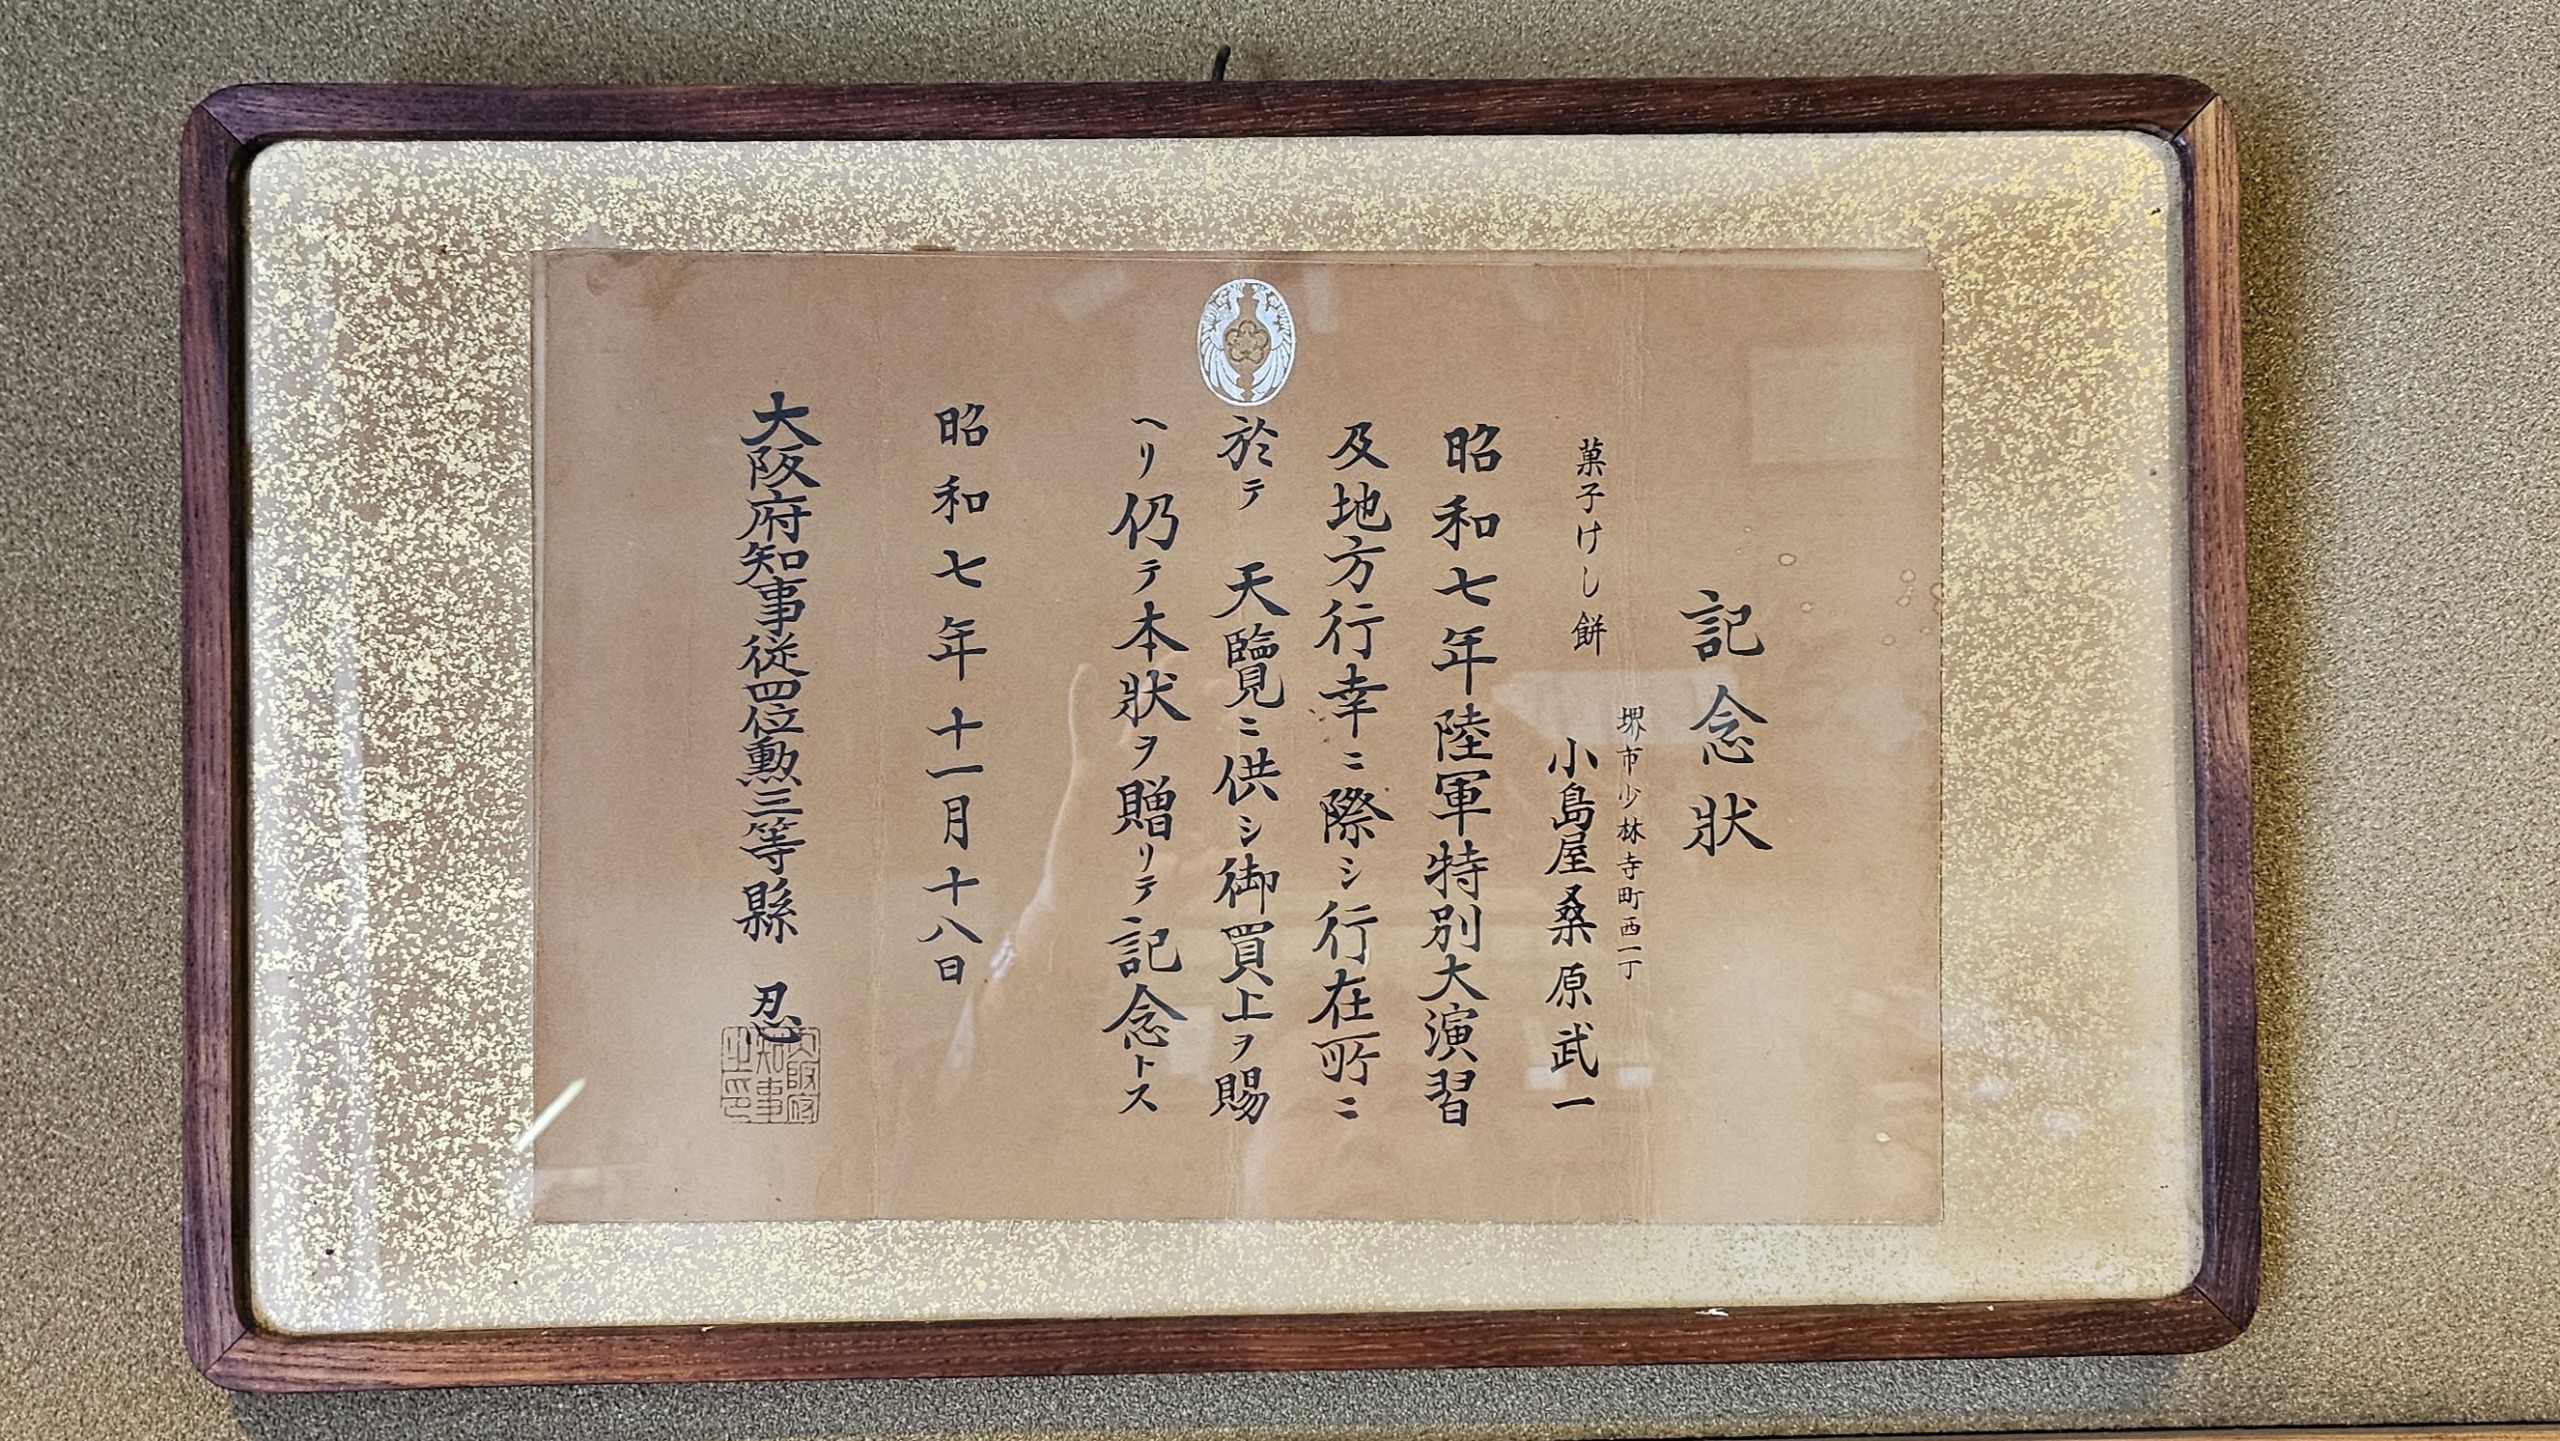 記念狀
菓子けし餅
堺市少林寺町西一丁
小島屋桑原武一
昭和七年陸軍特別大演習
及地方行幸ニ際シ行在所ニ
於テ 天覽ニ供シ御買上ヲ賜
ヘリ仍テ本狀ヲ贈リテ記念トス
昭和七年十一月十八日
大阪府知事従四位勳三等縣 忍
大阪府
知事
之印